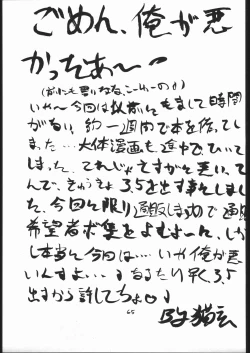 ごめん、俺が悪
かったあ〜
(なにも悪いなな、こーいーの♪)
いや〜今回は以前にもまして時間
がない、約一週間で本を作ってし
まった…大体漫画も途中でひいて
しまった、てれじゃさすがに悪い、て
んで、きゅうきょ3.5を出す事をしまし
た、今回に限り通販しますので通販
希望者求集をよむよーん、しか
し本当に今回は…いや俺が悪
いんすよ…♪なるたけ早く3.5
出すから許してちょ♪
65
猫玄